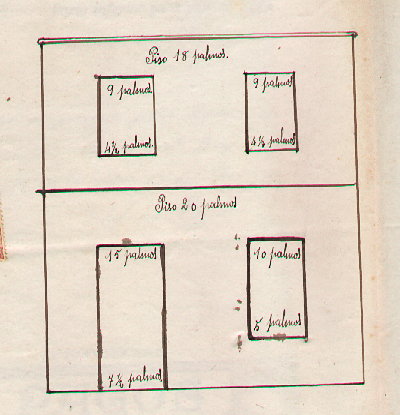 Piso 18 palmos.
9 palmos.
9 palmos
4½ palmos.
4½ palmos.
Piso 20 palmos
15 palmos
10 palmos
5 palmos
7½ palmos